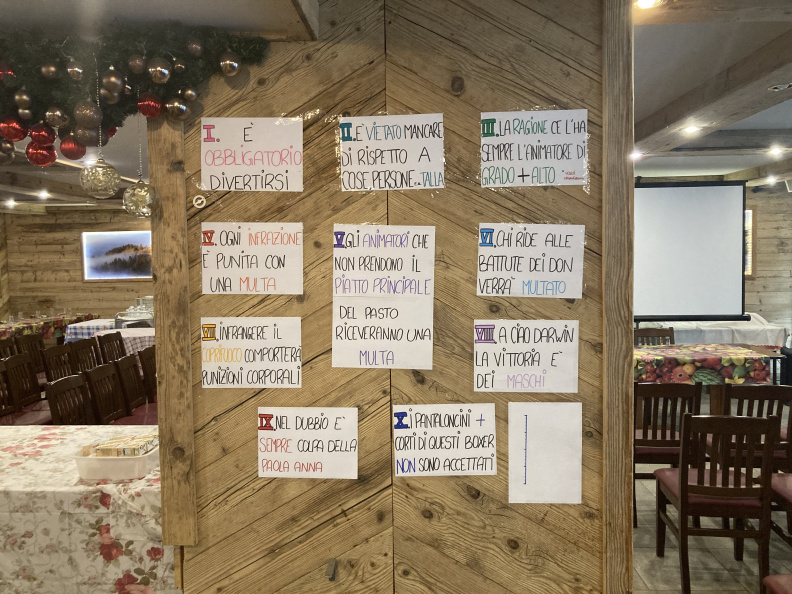 I. È
OBBLIGATORIO
DIVERTIRSI
II. E VIETATO MANCARE
DI RISPETTO A
COSE, PERSONE.. TALIA
III. LA RAGIONE CE L'HA
SEMPRE L'ANIMATORE DI
GRADO + ALTO
IV. OGNI INFRAZIONE
È PUNITA CON
UNA MULTA
V. GLI ANIMATORI CHE
NON PRENDONO IL
PIATTO PRINCIPALE
DEL PASTO
RICEVERANNO UNA
MULTA
VI. CHI RIDE ALLE
BATTUTE DEI DON
VERRA' MULTATO
VII. INFRANGERE IL
COPRIFUOCO COMPORTERÀ
PUNIZIONI CORPORALI
VIII. A CIAO DARWIN
LA VITTORIA E'
DEI MASCHI
IX NEL DUBBIO E'
SEMPRE COLPA DELLA
PAOLA ANNA
X. I PANTALONCINI +
CORTI DI QUESTI BOXER
NON SONO ACCETTATI